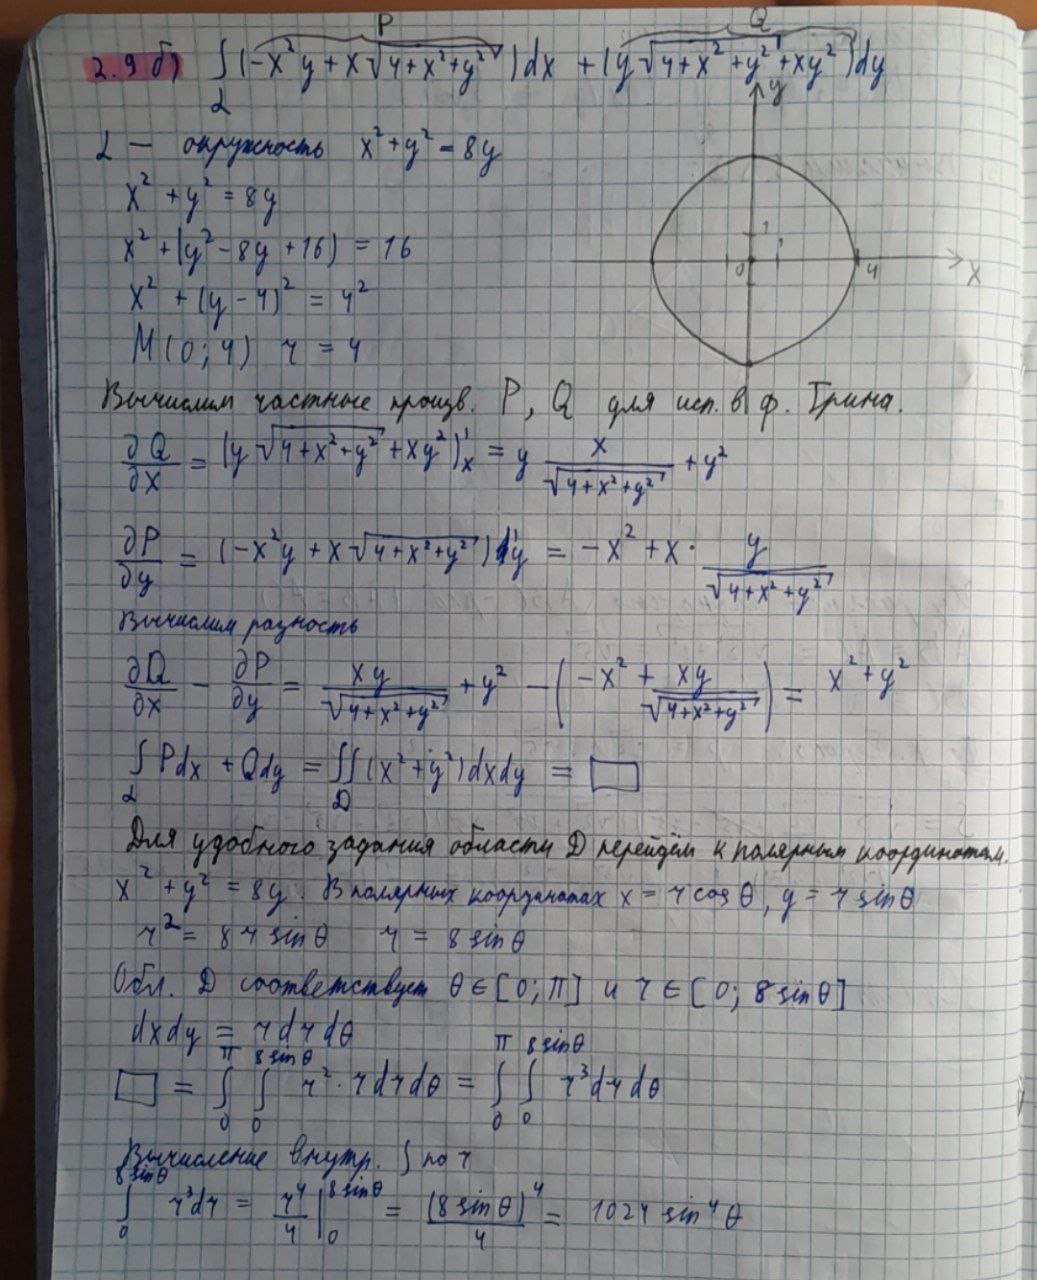 P Q
2.9 б) ∫_L (-x²y + x√(4+x²+y²))dx + (y√(4+x²+y²) + xy²)dy
y
L — окружность x²+y² = 8y
x² + y² = 8y
x² + (y² - 8y + 16) = 16
1 1
0 4 x
x² + (y - 4)² = 4²
M(0; 4) r = 4
Вычислим частные произв. P, Q для исп. в ф. Грина.
∂Q/∂x = (y√(4+x²+y²) + xy²)'x = y x/√(4+x²+y²) + y²
∂P/∂y = (-x²y + x√(4+x²+y²))'y = -x² + x · y/√(4+x²+y²)
Вычислим разность
∂Q/∂x - ∂P/∂y = xy/√(4+x²+y²) + y² - (-x² + xy/√(4+x²+y²)) = x²+y²
∫_L Pdx + Qdy = ∬_D (x²+y²)dxdy = □
Для удобного задания области D перейдём к полярным координатам.
x² + y² = 8y. В полярных координатах x = r cosθ, y = r sinθ
r² = 8r sinθ r = 8 sinθ
Обл. D соответствует θ∈[0; π] и r∈[0; 8sinθ]
dxdy = rdrdθ
□ = ∫_0^π ∫_0^{8sinθ} r² · rdrdθ = ∫_0^π ∫_0^{8sinθ} r³drdθ
Вычисление внутр. ∫ по r
∫_0^{8sinθ} r³dr = r⁴/4 |_0^{8sinθ} = (8sinθ)⁴/4 = 1024 sin⁴θ